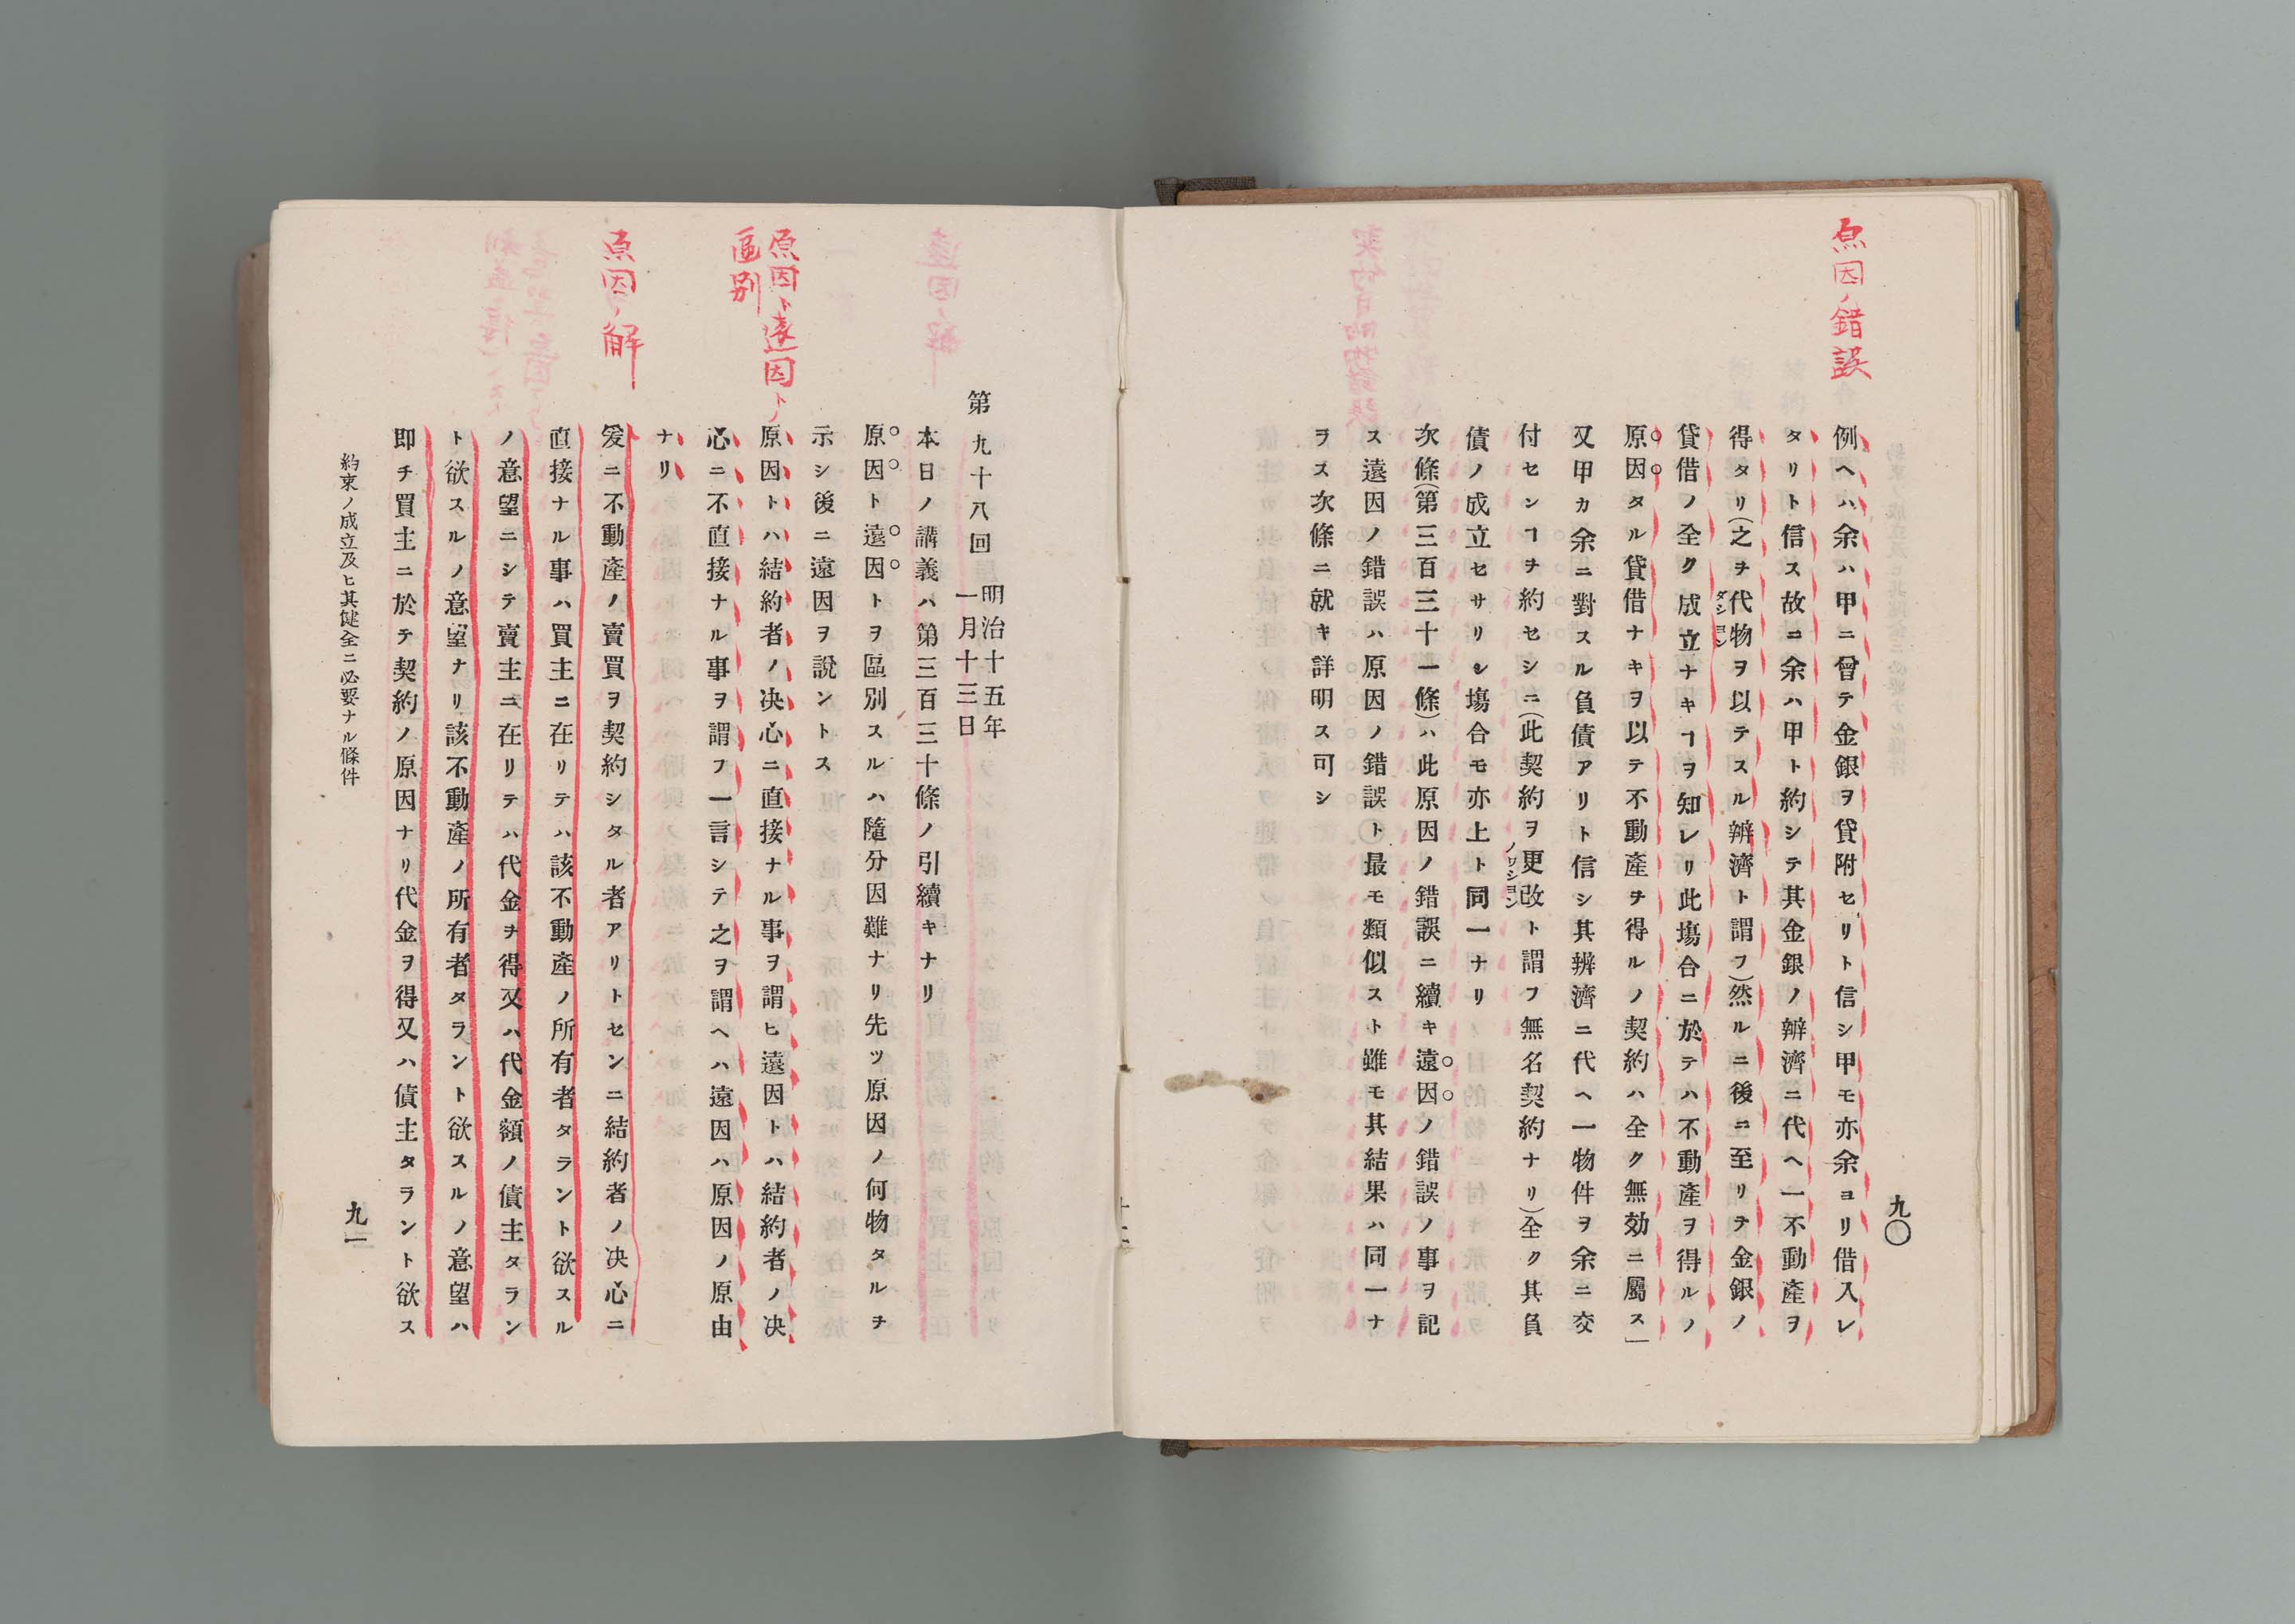 原因ノ錯誤
九〇
例ヘハ余ハ甲ニ曾テ金銀ヲ貸附セリト信シ甲モ亦余ヨリ借入レ
タリト信ス故ニ余ハ甲ト約シテ其金銀ノ辨濟ニ代ヘ一不動產ヲ
得タリ(之ヲ代物ヲ以テスル辨濟ト謂フ)然ルニ後ニ至リテ金銀ノ
貸借ノ全ク成立ナキヿヲ知レリ此塲合ニ於テハ不動產ヲ得ルノ
原因タル貸借ナキヲ以テ不動產ヲ得ルノ契約ハ全ク無効ニ屬ス」
又甲カ余ニ對スル負債アリト信シ其辨濟ニ代ヘ一物件ヲ余ニ交
付センヿヲ約セシニ(此契約ヲ更改ト謂フ無名契約ナリ)全ク其負
債ノ成立セサリシ塲合モ亦上ト同一ナリ
次條(第三百三十一條)ハ此原因ノ錯誤ニ續キ遠因ノ錯誤ノ事ヲ記
ス遠因ノ錯誤ハ原因ノ錯誤ト最モ類似スト雖モ其結果ハ同一ナ
ラス次條ニ就キ詳明ス可シ
第九十八回
明治十五年
一月十三日
本日ノ講義ハ第三百三十條ノ引續キナリ
原因ト遠因トヲ區別スルハ隨分困難ナリ先ツ原因ノ何物タルヲ
示シ後ニ遠因ヲ說ントス
原因ト遠因トノ
區別
原因トハ結約者ノ决心ニ直接ナル事ヲ謂ヒ遠因トハ結約者ノ决
心ニ不直接ナル事ヲ謂フ一言シテ之ヲ謂ヘハ遠因ハ原因ノ原由
ナリ
原因ノ解
爰ニ不動產ノ賣買ヲ契約シタル者アリトセンニ結約者ノ决心ニ
直接ナル事ハ買主ニ在リテハ該不動產ノ所有者タラント欲スル
ノ意望ニシテ賣主ニ在リテハ代金ヲ得又ハ代金額ノ債主タラン
ト欲スルノ意望ナリ該不動產ノ所有者タラント欲スルノ意望ハ
即チ買主ニ於テ契約ノ原因ナリ代金ヲ得又ハ債主タラント欲ス
約束ノ成立及ヒ其健全ニ必要ナル條件
九一